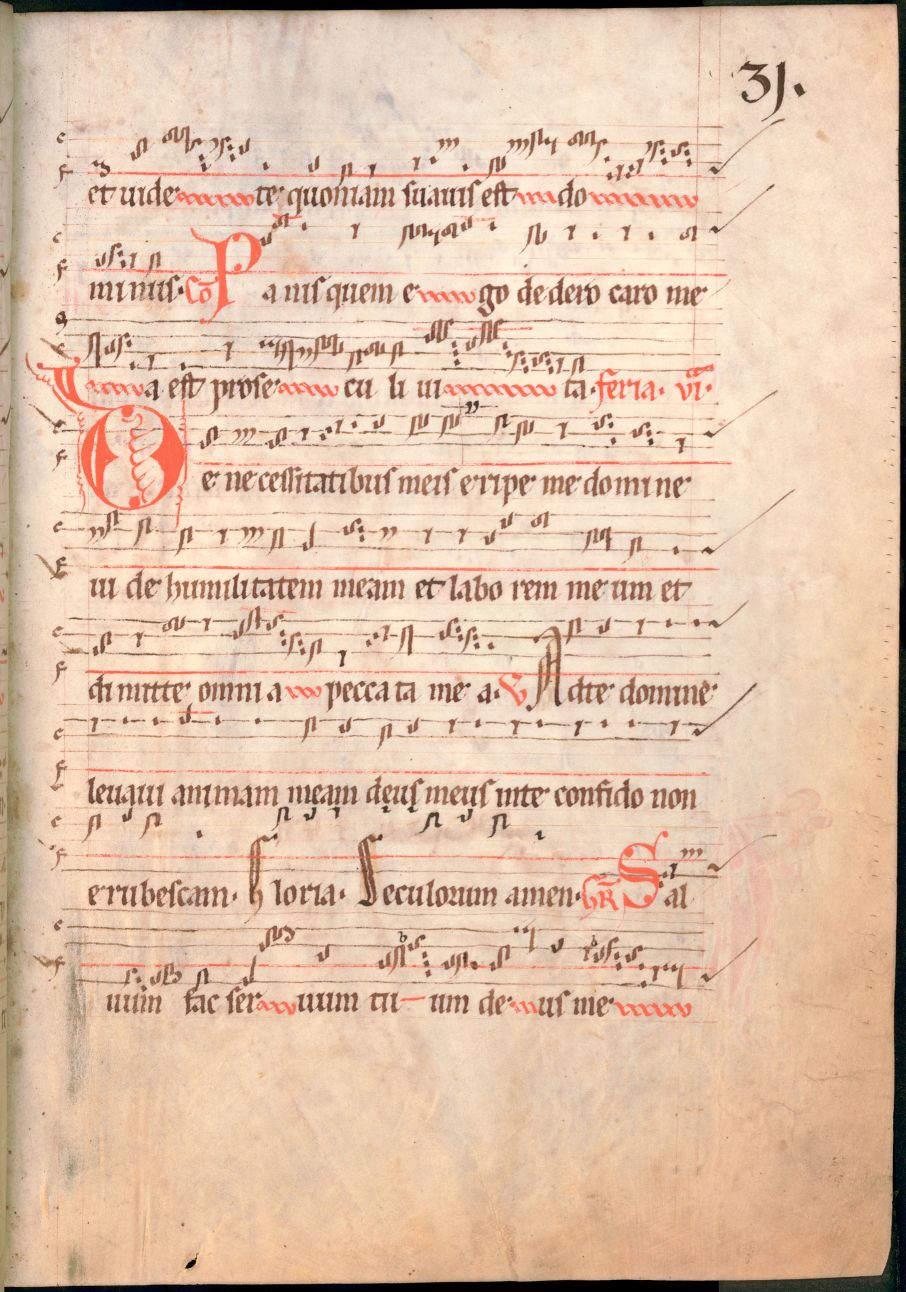 31.
et uidete quoniam suauis est do
minus. Co Panis quem ego dedero caro me
a est pro seculi uita feria. vi.
De necessitatibus meis eripe me domine
uide humilitatem meam et laborem meum et
dimitte omnia peccata mea. V Ad te domine
leuaui animam meam deus meus in te confido non
erubescam. Gloria. Seculorum amen. GR Sal
uum fac seruum tuum deus me